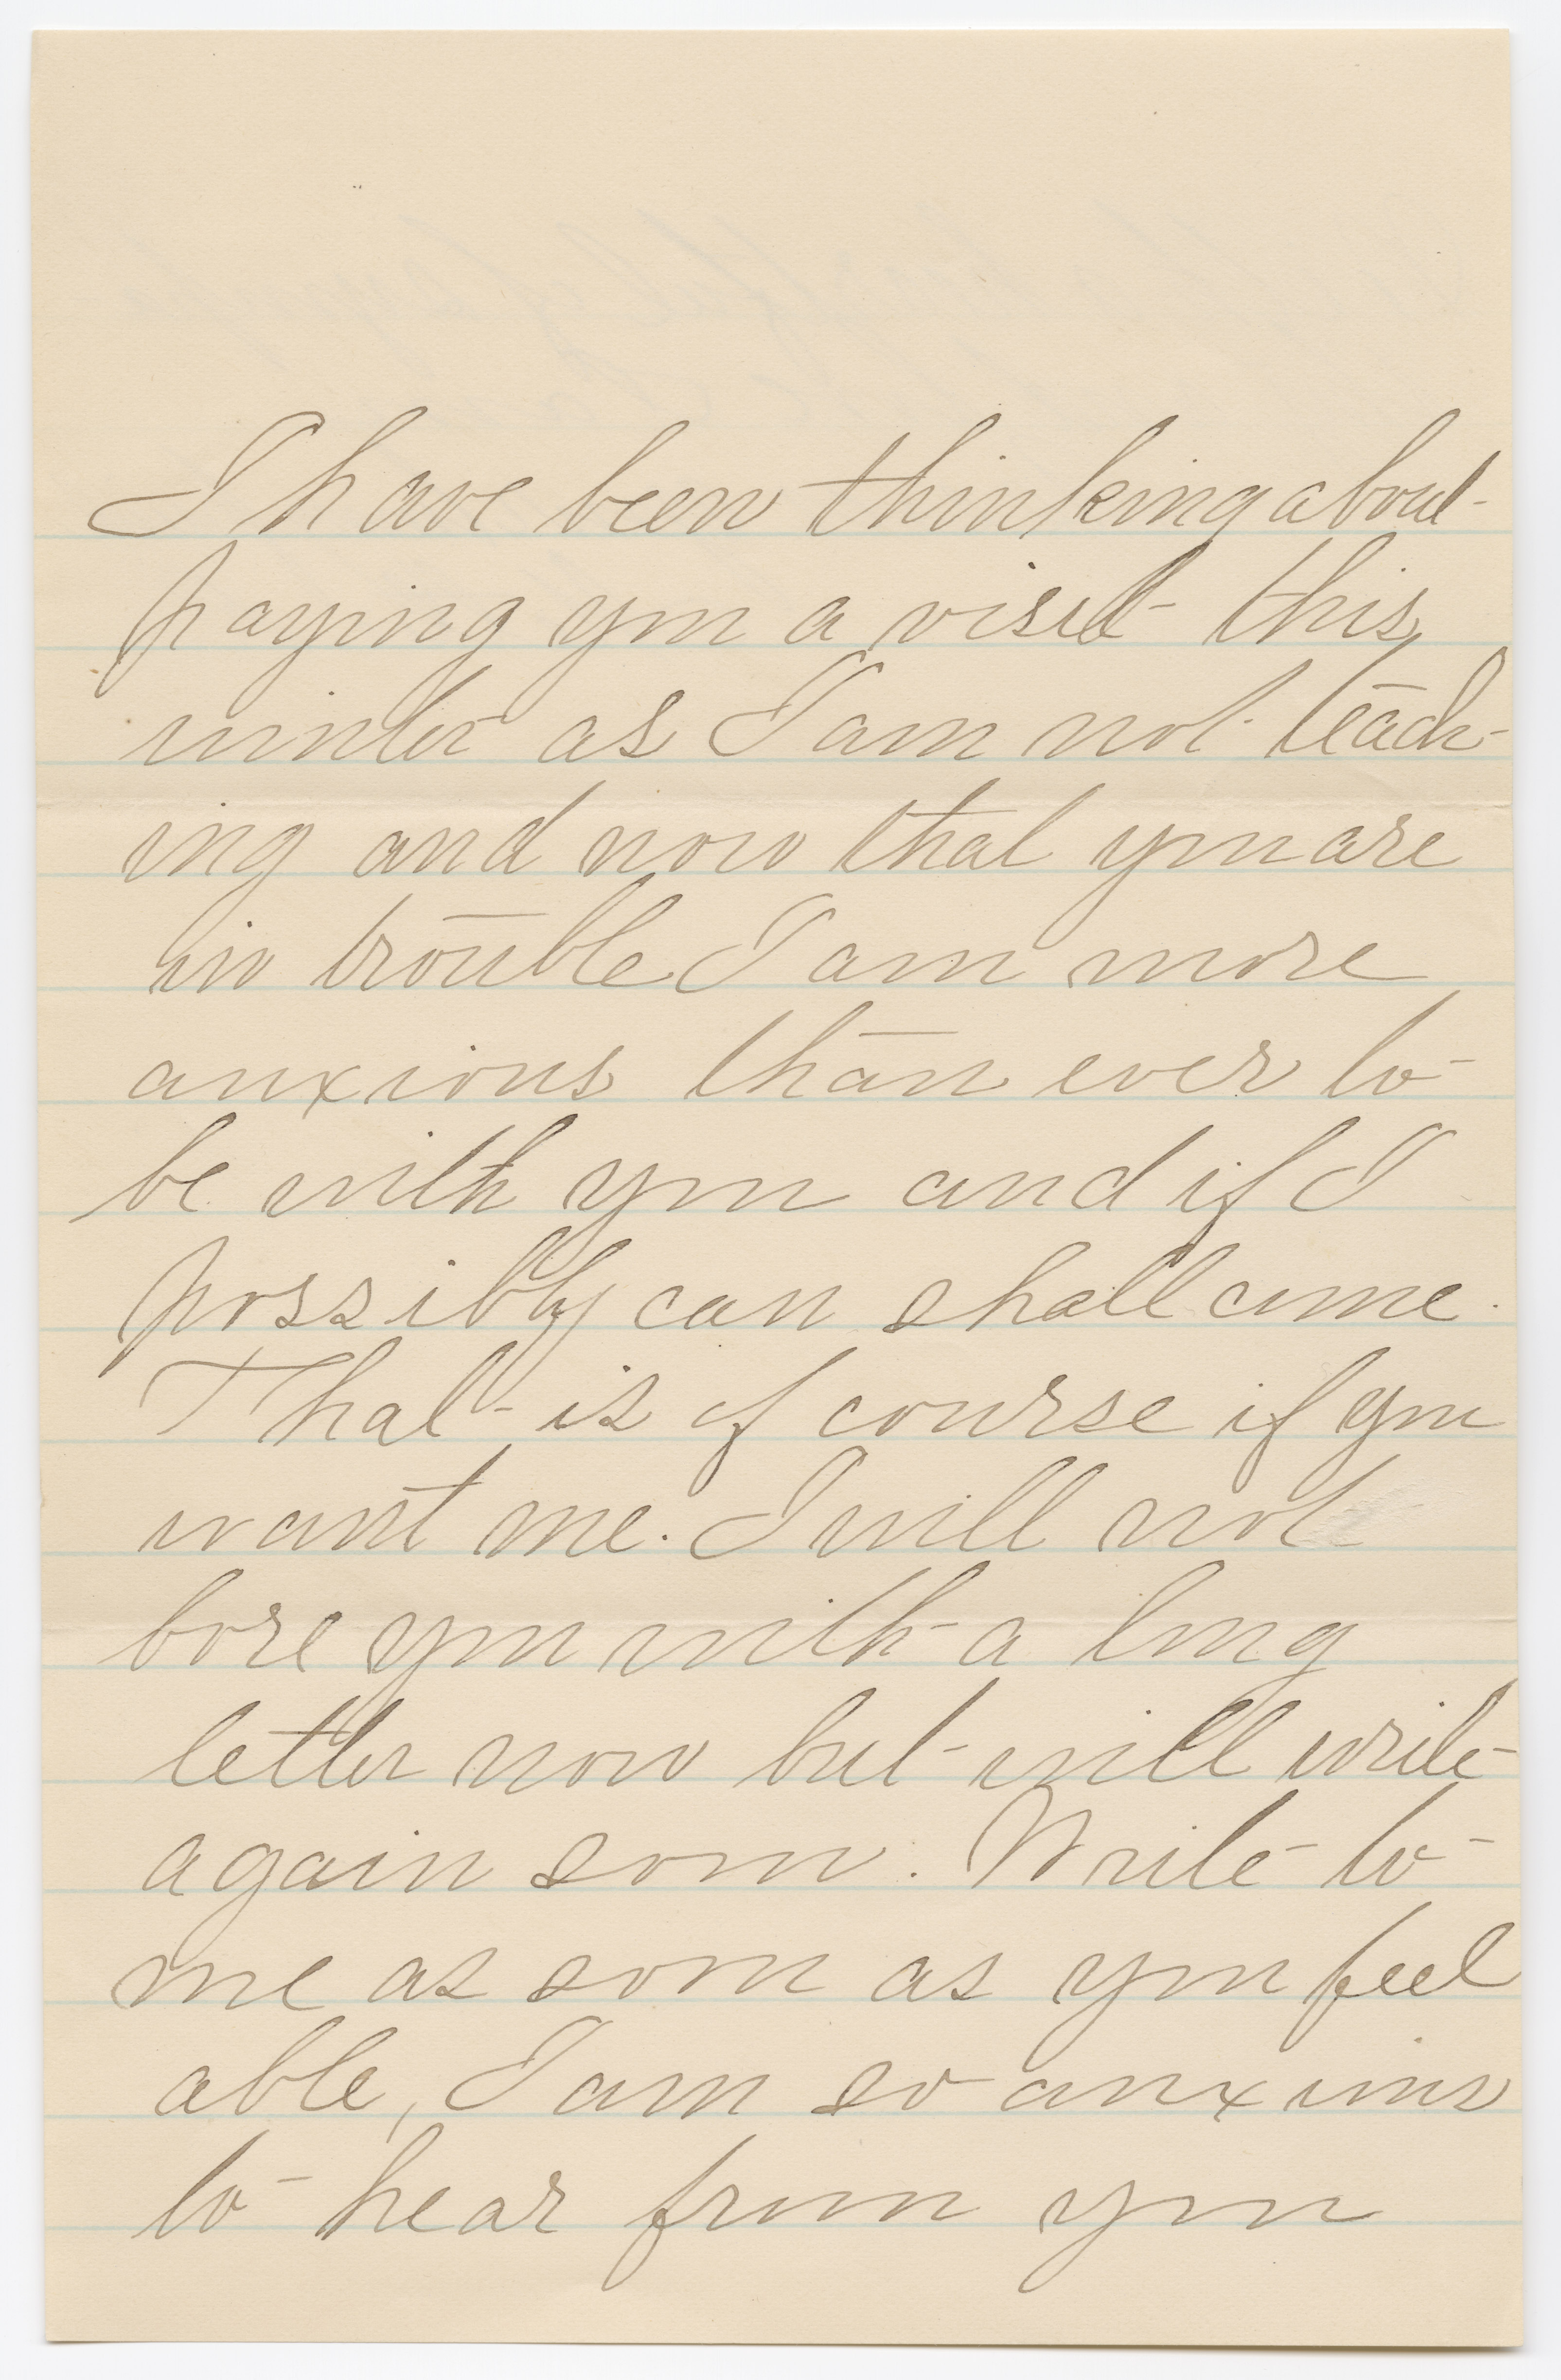 I have been thinking about
paying you a visit this
winter as I am not teach-
ing and now that you are
in trouble I am more
anxious than ever to
be with you and if I
possibly can shall come.
That is of course if you
want me. I will not
bore you with a long
letter now but will write
again soon. Write to
me as soon as you feel
able, I am so anxious
to hear from you